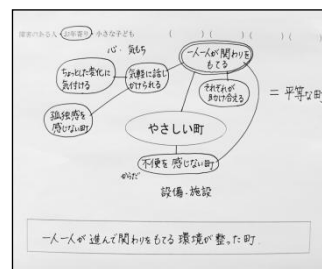 障害のある人・お年寄り・小さな子ども ( )( )( )( )
心・気もち
一人一人が関わりを
もてる
ちょっとした変化に
気付ける
気軽に話し
かけられる
それぞれが
助け合える
孤独感を
感じない町
= 平等な町
やさしい町
不便を感じない町
からだ
設備・施設
一人一人が進んで関わりをもてる環境が整った町